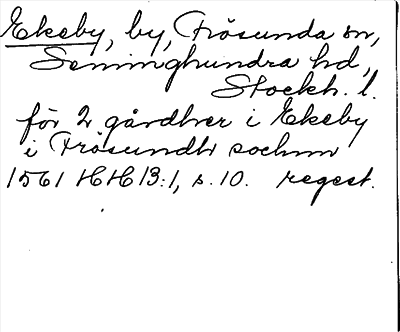 Ekeby, by, Frösunda sn,
Seminghundra hd,
Stockh. l.
för 2 gårdher i Ekeby
i Frösundh sochnn
1561 HH 13:1, s. 10. regest.